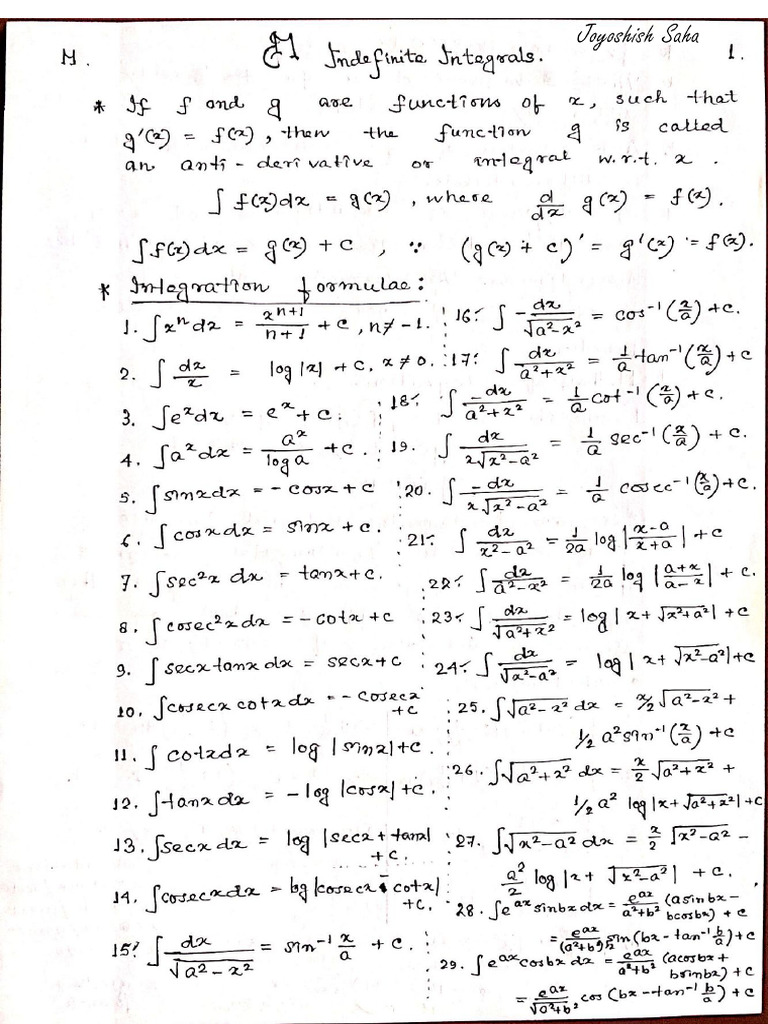 Joyoshish Saha
M. Indefinite Integrals. 1.
* If f and g are functions of x, such that
g'(x) = f(x), then the function g is called
an anti-derivative or integral w.r.t. x.
∫ f(x)dx = g(x), where d/dx g(x) = f(x).
∫f(x)dx = g(x) + c, ∵ (g(x) + c)' = g'(x) = f(x).
* Integration formulae:
1. ∫x^n dx = x^(n+1)/(n+1) + c, n ≠ -1.
2. ∫ dx/x = log|x| + c. x ≠ 0.
3. ∫e^x dx = e^x + c.
4. ∫a^x dx = a^x/log a + c.
5. ∫sinx dx = -cosx + c
6. ∫cosx dx = sinx + c.
7. ∫sec²x dx = tanx + c.
8. ∫cosec²x dx = -cotx + c
9. ∫secx tanx dx = secx + c
10. ∫cosecx cotx dx = -cosecx
+c
11. ∫cotx dx = log|sinx| + c.
12. ∫tanx dx = -log|cosx| + c.
13. ∫secx dx = log|secx + tanx|
+ c.
14. ∫cosecx dx = log|cosecx - cotx|
+c.
15. ∫ dx/√(a² - x²) = sin⁻¹ x/a + c.
16. ∫ -dx/√(a² - x²) = cos⁻¹(x/a) + c.
17. ∫ dx/(a² + x²) = 1/a tan⁻¹(x/a) + c
18. ∫ -dx/(a² + x²) = 1/a cot⁻¹(x/a) + c.
19. ∫ dx/(x√(x² - a²)) = 1/a sec⁻¹(x/a) + c.
20. ∫ -dx/(x√(x² - a²)) = 1/a cosec⁻¹(x/a) + c.
21. ∫ dx/(x² - a²) = 1/2a log|(x-a)/(x+a)| + c
22. ∫ dx/(a² - x²) = 1/2a log|(a+x)/(a-x)| + c.
23. ∫ dx/√(a² + x²) = log|x + √(x² + a²)| + c
24. ∫ dx/√(x² - a²) = log|x + √(x² - a²)| + c
25. ∫√(a² - x²) dx = x/2 √(a² - x²) +
1/2 a² sin⁻¹(x/a) + c
26. ∫√(a² + x²) dx = x/2 √(a² + x²) +
1/2 a² log|x + √(a² + x²)| + c
27. ∫√(x² - a²) dx = x/2 √(x² - a²) -
a²/2 log|x + √(x² - a²)| + c.
28. ∫e^(ax) sinbx dx = e^(ax)/(a² + b²) (asinbx -
bcosbx) + c
= e^(ax)/(a² + b²)^½ sin(bx - tan⁻¹ b/a) + c
29. ∫e^(ax) cosbx dx = e^(ax)/(a² + b²) (acosbx +
bsinbx) + c
= e^(ax)/√(a² + b²) cos(bx - tan⁻¹ b/a) + c